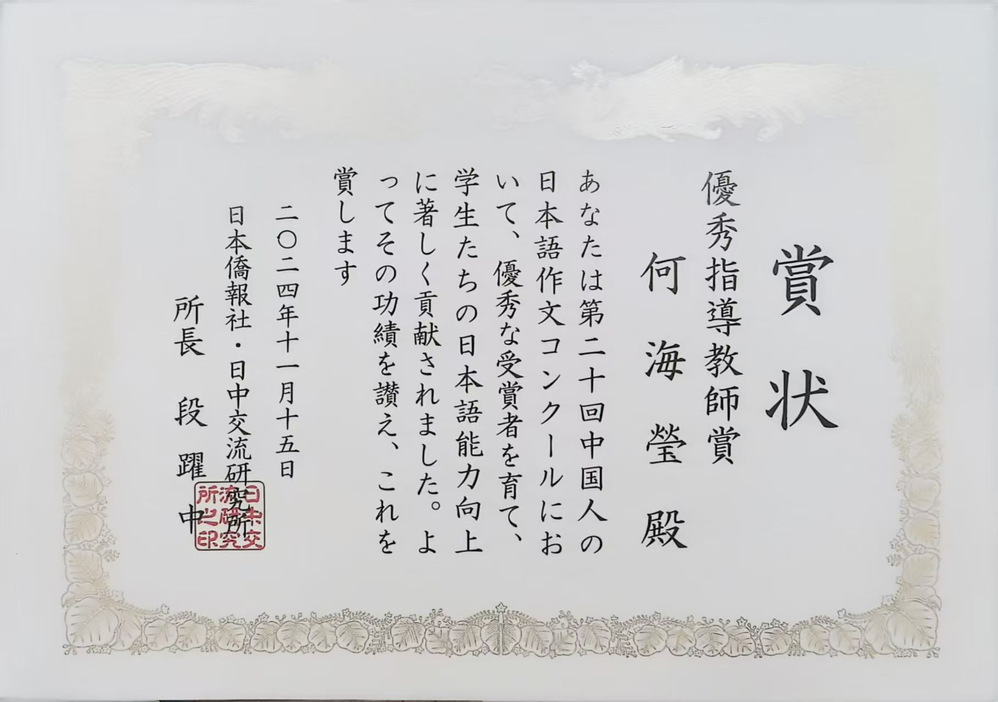 賞状
優秀指導教師賞
何海瑩殿
あなたは第二十回中国人の
日本語作文コンクールにお
いて、優秀な受賞者を育て、
学生たちの日本語能力向上
に著しく貢献されました。よ
ってその功績を讃え、これを
賞します
二〇二四年十一月十五日
日本僑報社・日中交流研究所
所長 段躍中
日中交
流研究
所之印